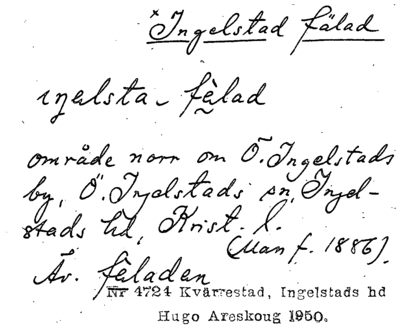 × Ingelstad fälad
iŋelsta - fèlad
område norr om Ö. Ingelstads
by, Ö. Ingelstads sn, Ingel-
stads hd, Krist. l.
(Man f. 1886).
Äv. fèladen
Nr 4724 Kvärrestad, Ingelstads hd
Hugo Areskoug 1950.